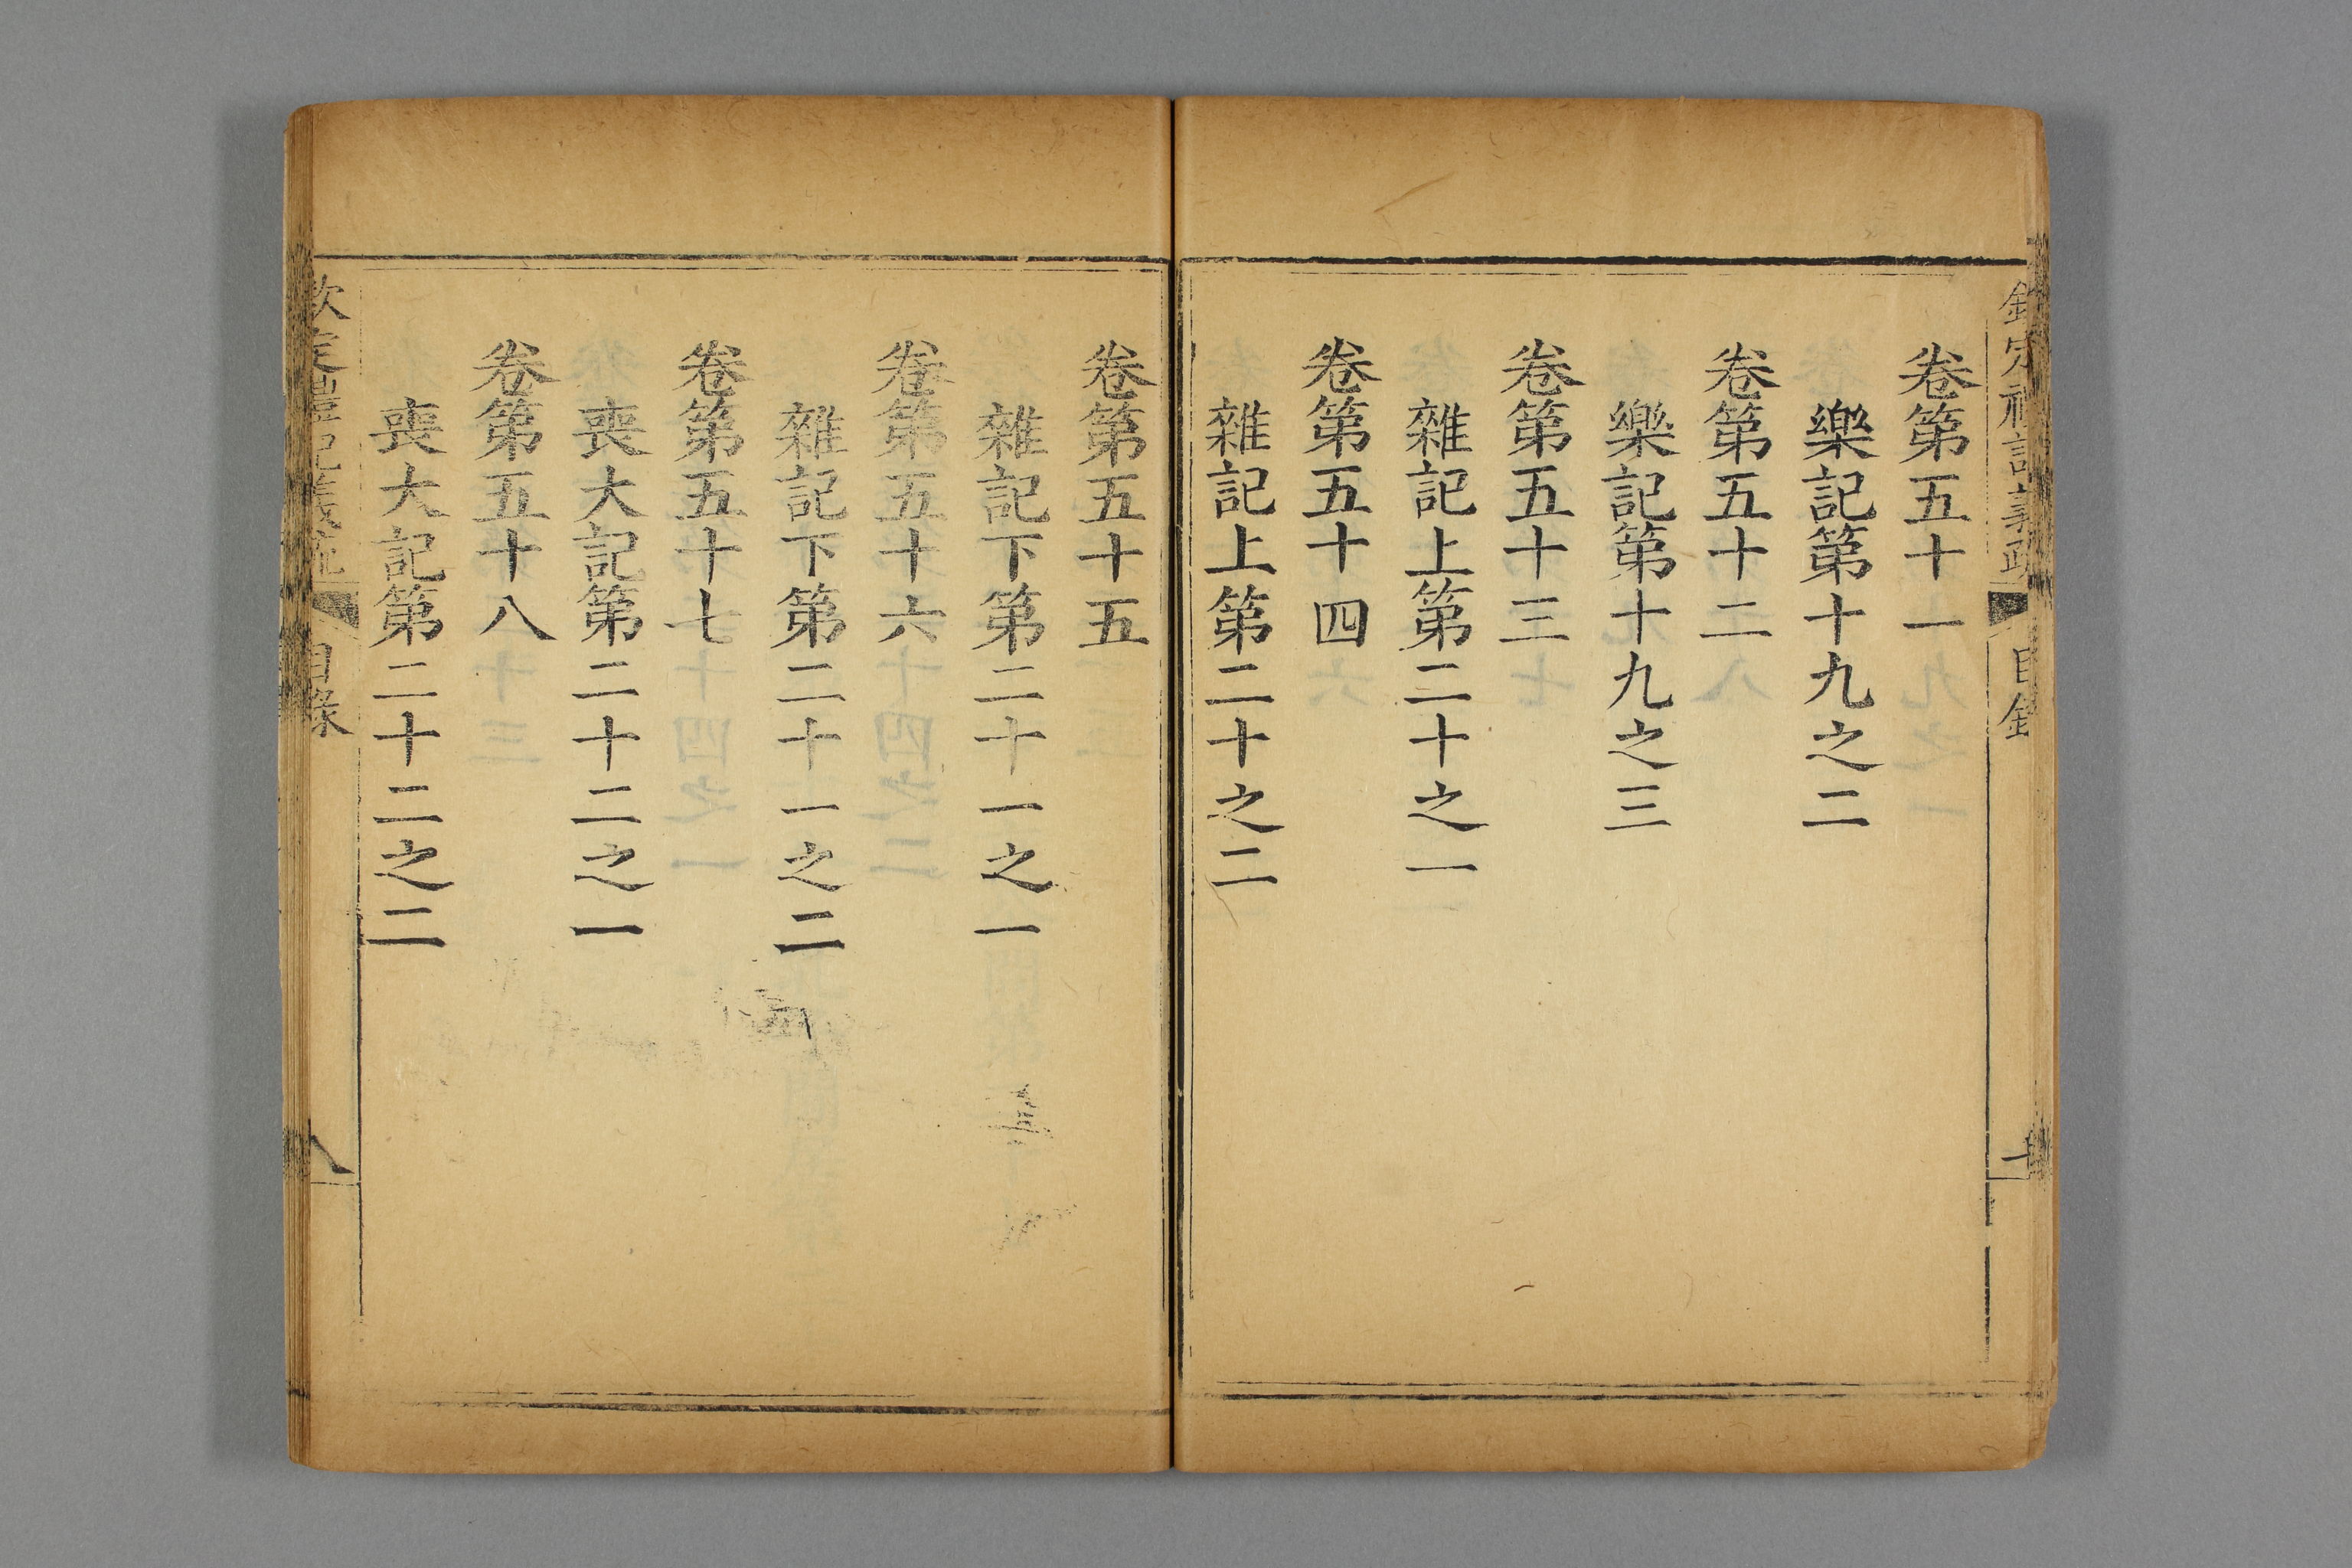 欽定禮記義疏 目錄
卷第五十一
樂記第十九之二
卷第五十二
樂記第十九之三
卷第五十三
雜記上第二十之一
卷第五十四
雜記上第二十之二
卷第五十五
雜記下第二十一之一
卷第五十六
雜記下第二十一之二
卷第五十七
喪大記第二十二之一
卷第五十八
喪大記第二十二之二
欽定禮記義疏 目錄 八